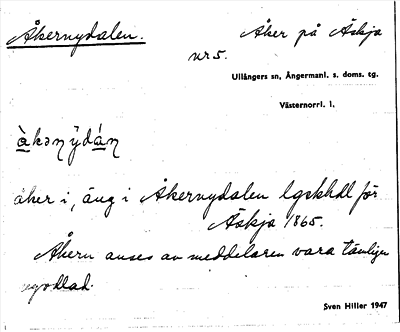 Åkernydalen.
Åker på Äskja
nr 5.
Ullångers sn, Ångermanl. s. doms. tg.
Västernorrl. l.
àkənýdán
åker i, äng i Åkernydalen lgskhdl för
Äskja 1865.
Åkern anses av meddelaren vara tämligen
nyodlad.
Sven Hiller 1947